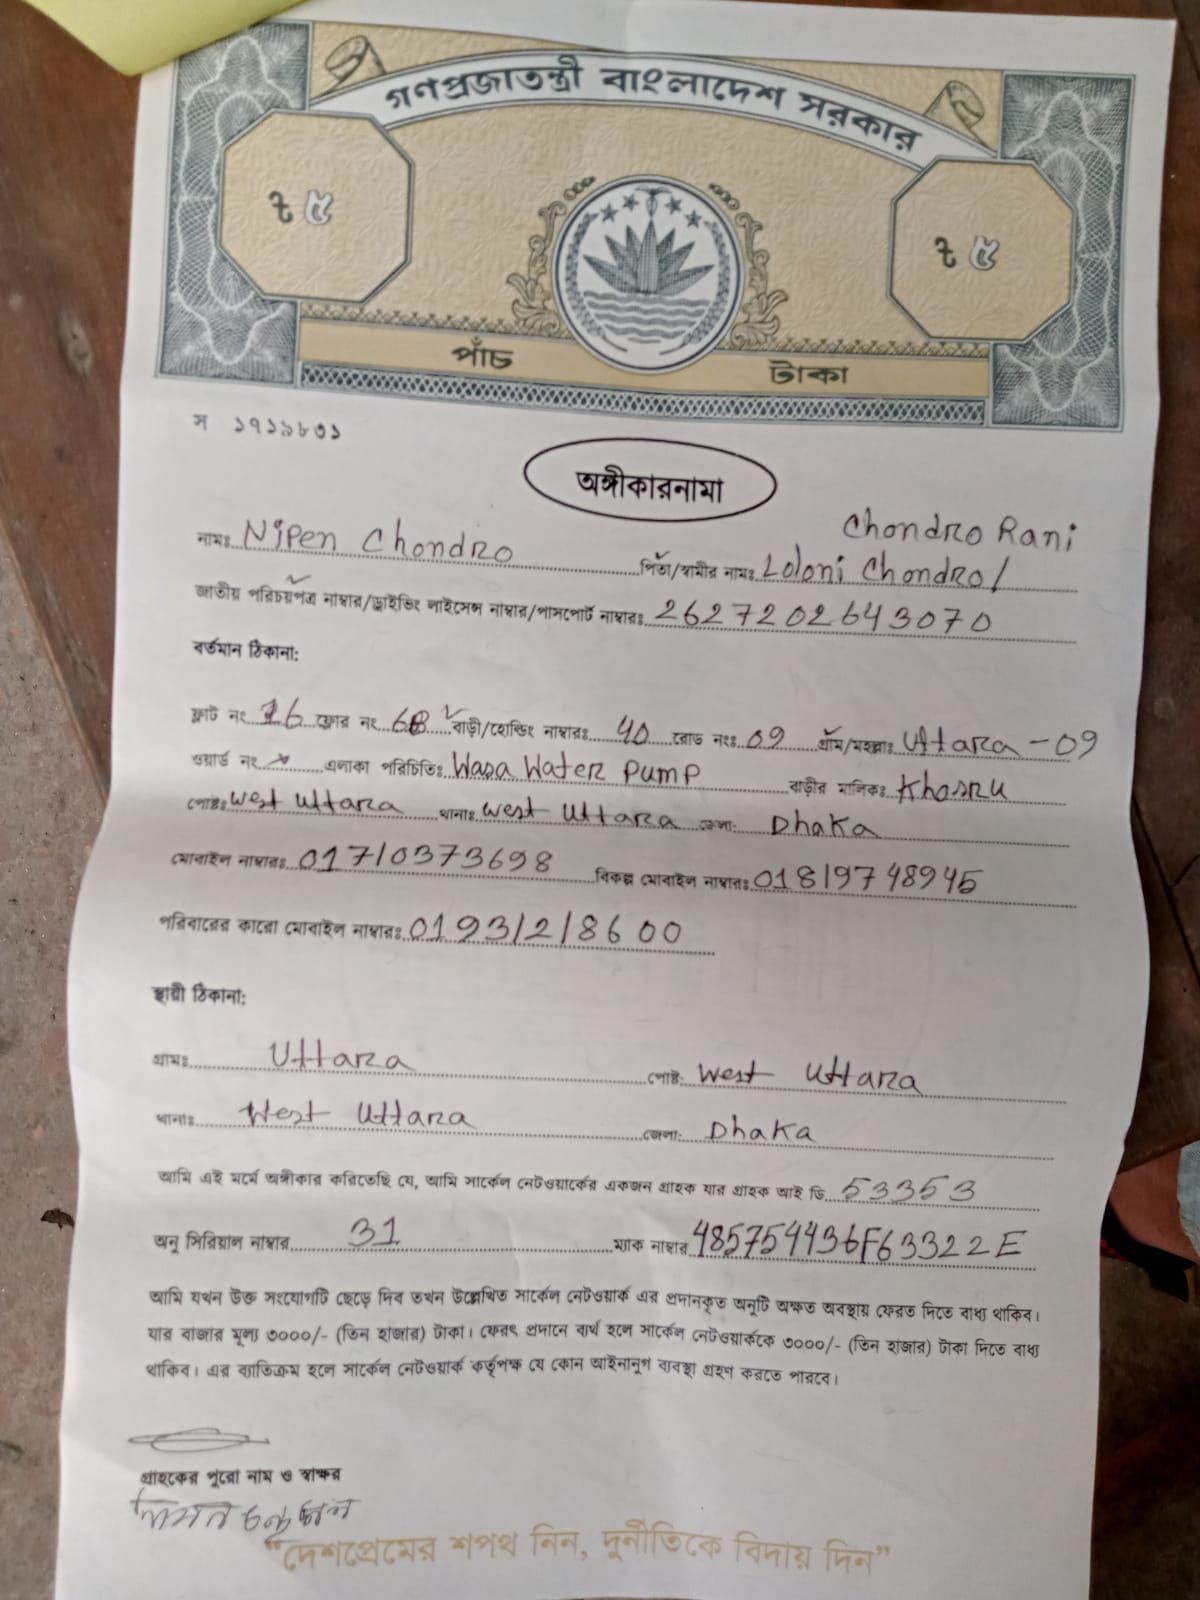 গণপ্রজাতন্ত্রী বাংলাদেশ সরকার
৳ ৫
৳ ৫
পাঁচ টাকা
স ১৭১৯৮৩১
অঙ্গীকারনামা
Chondro Rani
নামঃ Nipen Chondro পিতা/স্বামীর নামঃ Loloni Chondro/
জাতীয় পরিচয়পত্র নাম্বার/ড্রাইভিং লাইসেন্স নাম্বার/পাসপোর্ট নাম্বারঃ 2627202643070
বর্তমান ঠিকানা:
ফ্লাট নং ফ্লোর নং বাড়ী/হোল্ডিং নাম্বারঃ 40 রোড নংঃ 09 গ্রাম/মহল্লাঃ Uttara - 09
ওয়ার্ড নং এলাকা পরিচিতিঃ Wasa Water Pump বাড়ীর মালিকঃ Khosru
পোষ্টঃ West Uttara থানাঃ West Uttara জেলা: Dhaka
মোবাইল নাম্বারঃ 01710373698 বিকল্প মোবাইল নাম্বারঃ 01819748945
পরিবারের কারো মোবাইল নাম্বারঃ 01931218600
স্থায়ী ঠিকানা:
গ্রামঃ Uttara পোষ্ট: West Uttara
থানাঃ West Uttara জেলা: Dhaka
আমি এই মর্মে অঙ্গীকার করিতেছি যে, আমি সার্কেল নেটওয়ার্কের একজন গ্রাহক যার গ্রাহক আই ডি 53353
অনু সিরিয়াল নাম্বার 31 ম্যাক নাম্বার 485754436F63322E
আমি যখন উক্ত সংযোগটি ছেড়ে দিব তখন উল্লেখিত সার্কেল নেটওয়ার্ক এর প্রদানকৃত অনুটি অক্ষত অবস্থায় ফেরত দিতে বাধ্য থাকিব।
যার বাজার মূল্য ৩০০০/- (তিন হাজার) টাকা। ফেরৎ প্রদানে ব্যর্থ হলে সার্কেল নেটওয়ার্ককে ৩০০০/- (তিন হাজার) টাকা দিতে বাধ্য
থাকিব। এর ব্যাতিক্রম হলে সার্কেল নেটওয়ার্ক কর্তৃপক্ষ যে কোন আইনানুগ ব্যবস্থা গ্রহণ করতে পারবে।
গ্রাহকের পুরো নাম ও স্বাক্ষর
“দেশপ্রেমের শপথ নিন, দুর্নীতিকে বিদায় দিন”